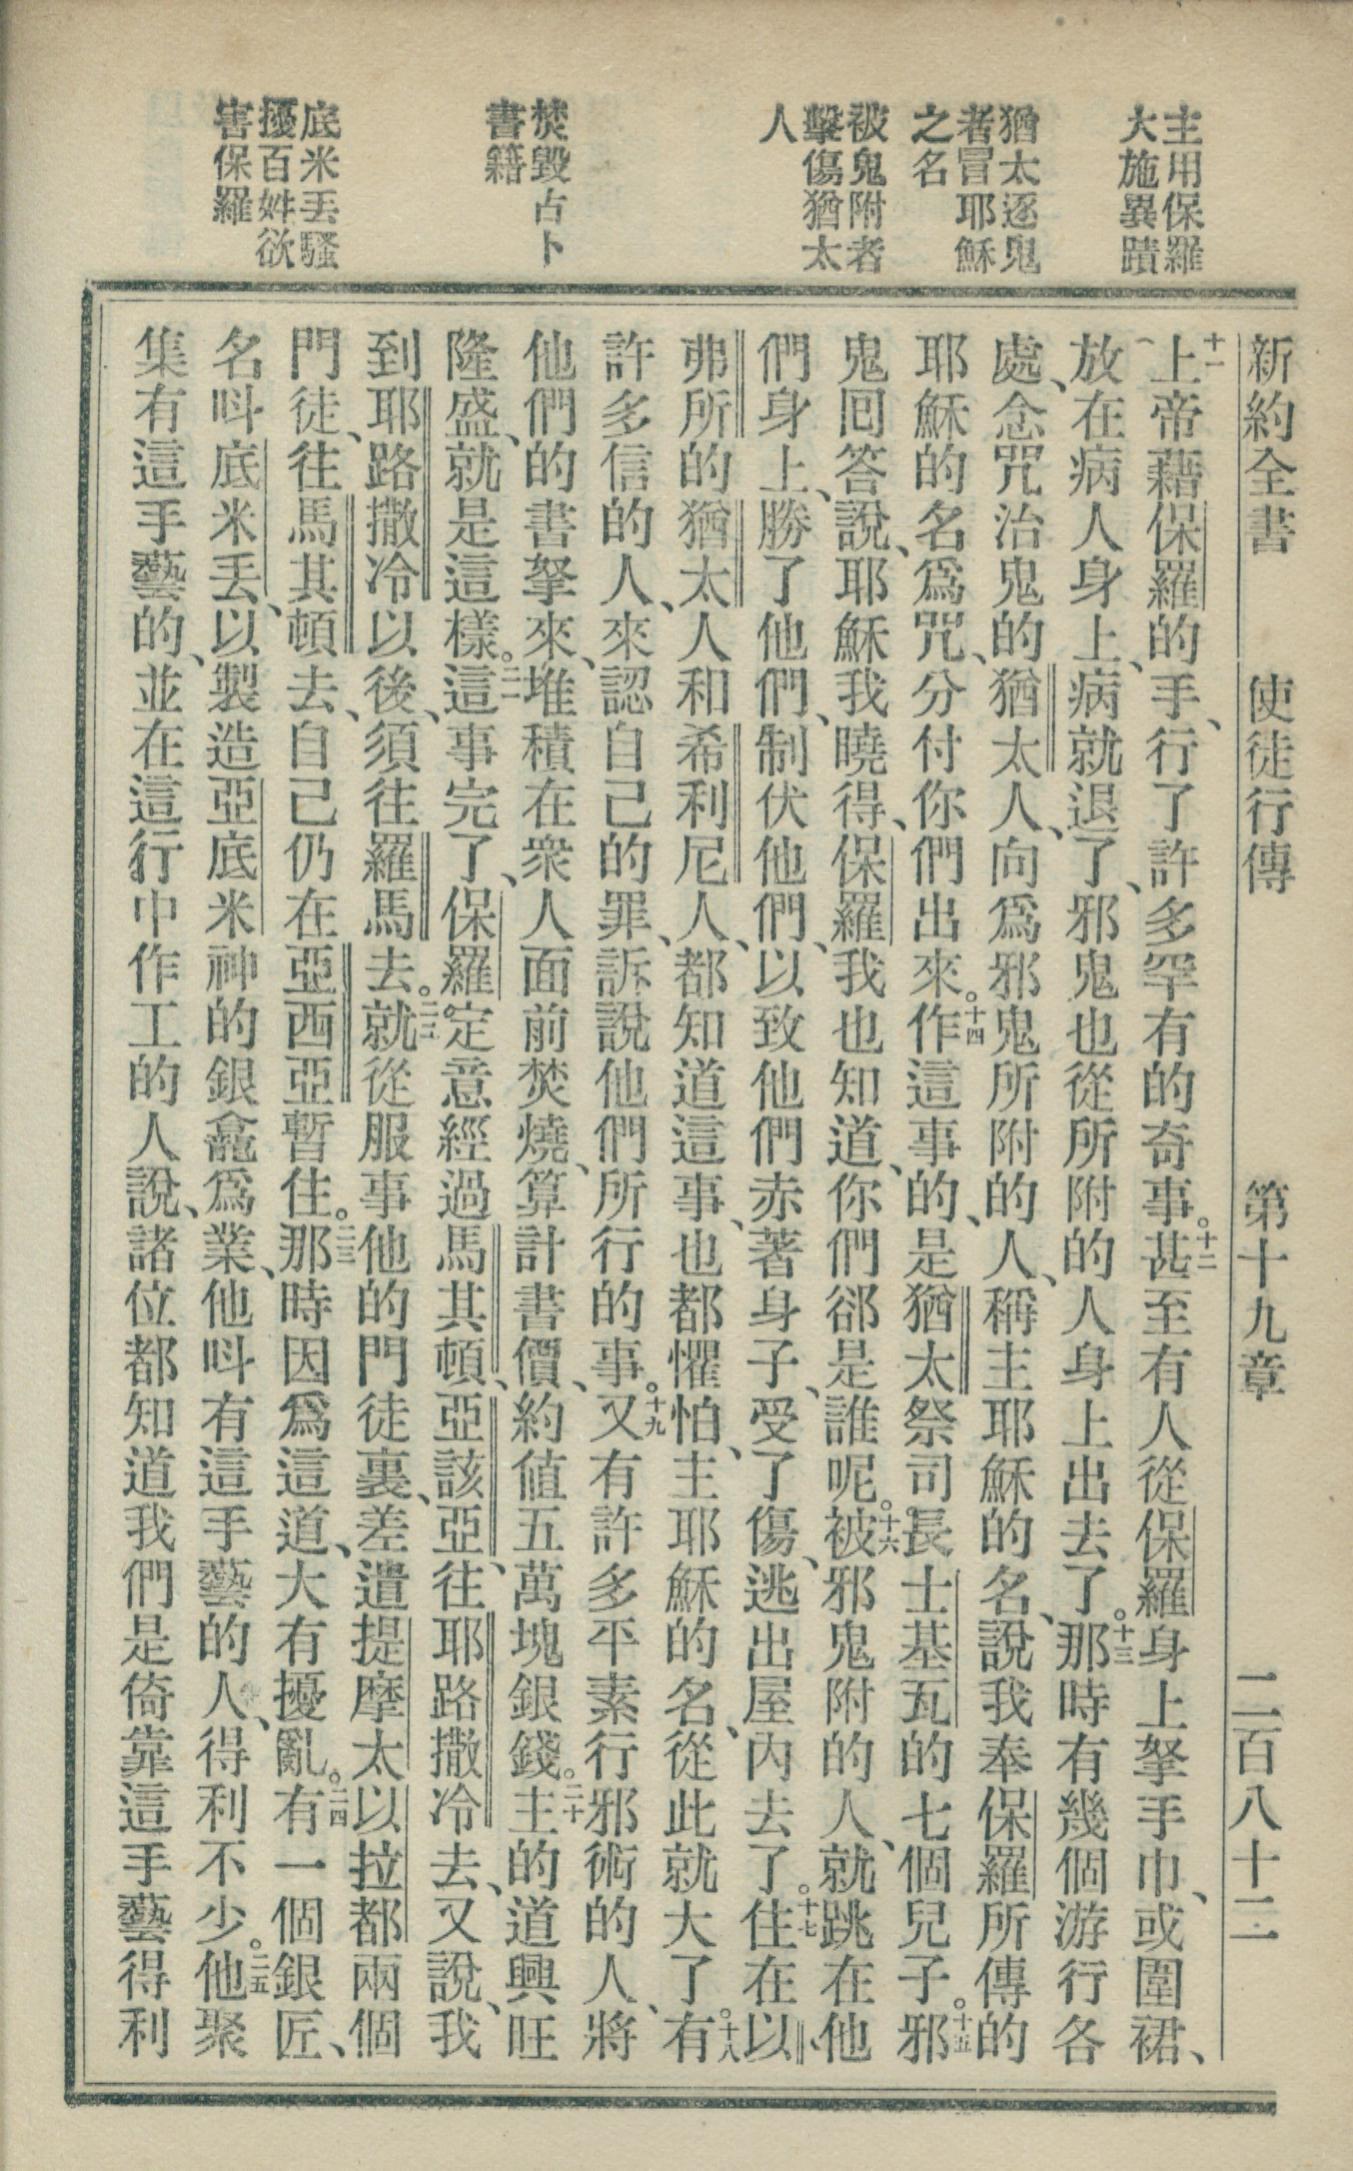 主用保羅
大施異蹟
猶太逐鬼
者冒耶穌
之名
被鬼附者
擊傷猶太
人
焚毀占卜
書籍
底米丟騷
擾百姓欲
害保羅
新約全書　使徒行傳　第十九章　二百八十二
十一上帝藉保羅的手、行了許多罕有的奇事。十二甚至有人從保羅身上拏手巾、或圍裙、
放在病人身上、病就退了、邪鬼也從所附的人身上出去了。十三那時有幾個游行各
處、念咒治鬼的猶太人、向爲邪鬼所附的人、稱主耶穌的名、說我奉保羅所傳的
耶穌的名爲咒、分付你們出來。十四作這事的、是猶太祭司長士基瓦的七個兒子。十五邪
鬼回答說、耶穌我曉得、保羅我也知道、你們郤是誰呢。十六被邪鬼附的人、就跳在他
們身上、勝了他們、制伏他們、以致他們赤著身子、受了傷、逃出屋內去了。十七住在以
弗所的猶太人和希利尼人、都知道這事、也都懼怕、主耶穌的名、從此就大了。十八有
許多信的人、來認自己的罪、訴說他們所行的事。十九又有許多平素行邪術的人、將
他們的書拏來、堆積在衆人面前焚燒、算計書價、約値五萬塊銀錢。二十主的道興旺
隆盛、就是這樣。二一這事完了、保羅定意經過馬其頓、亞該亞、往耶路撒冷去、又說、我
到耶路撒冷以後、須往羅馬去。二二就從服事他的門徒裏、差遣提摩太以拉都兩個
門徒、往馬其頓去、自己仍在亞西亞暫住。二三那時因爲這道、大有擾亂。二四有一個銀匠、
名呌底米丟、以製造亞底米神的銀龕爲業、他呌有這手藝的人、得利不少。二五他聚
集有這手藝的、並在這行中作工的人說、諸位都知道我們是倚靠這手藝得利